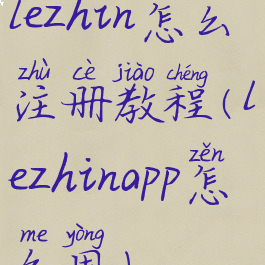 lezhin怎么
zhù cè jiào chéng
注册教程(l
zěn
ezhinapp怎
me yòng
么用)